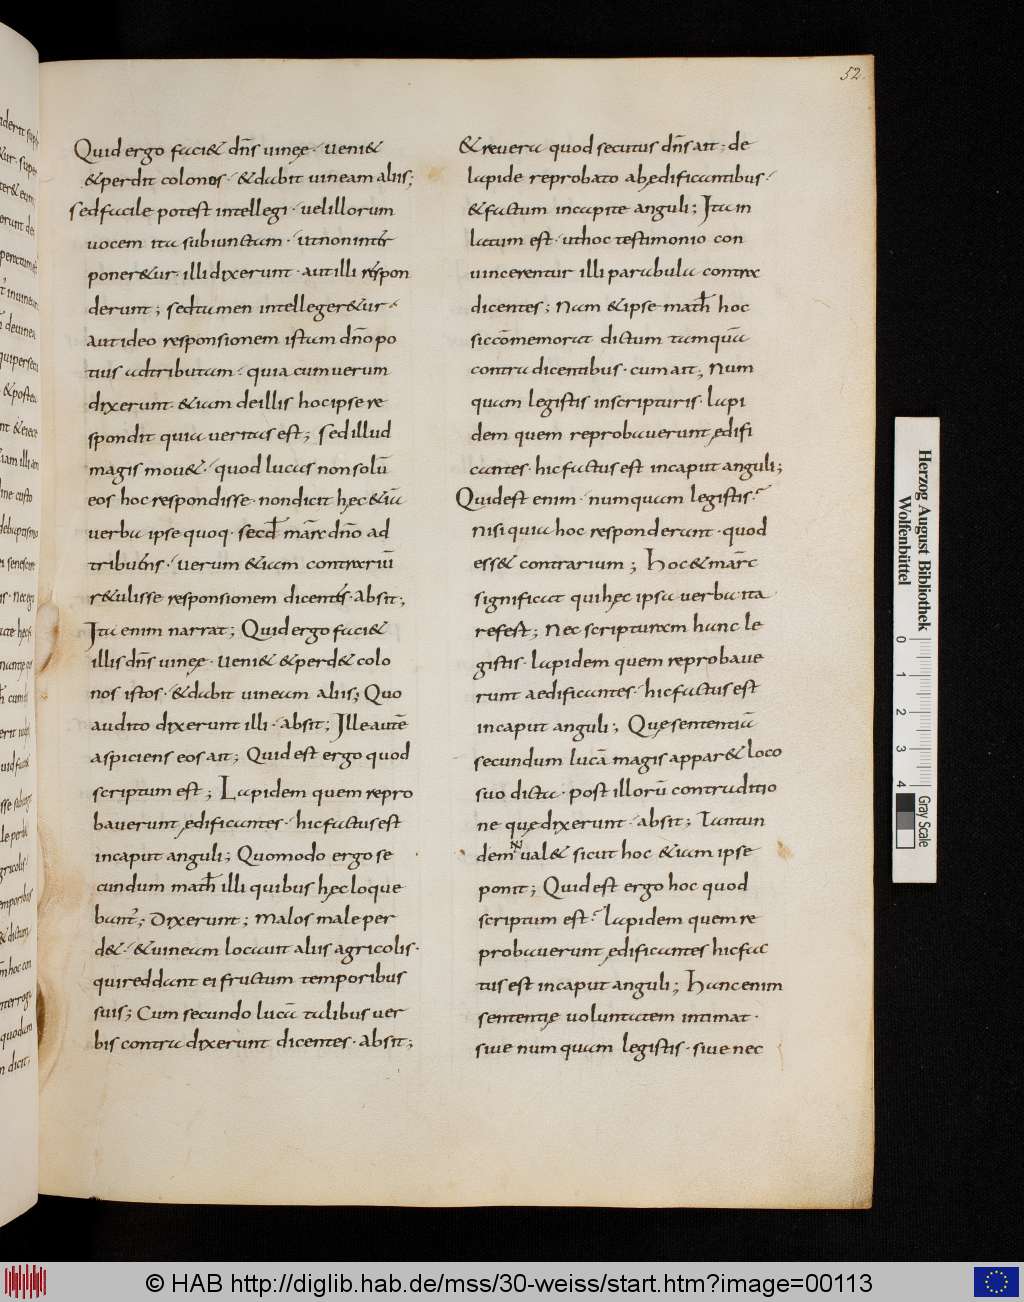 52
Quid ergo faci& dñs uineę· ueni&
&perdit colonos· &dabit uineam aliis;
Sed facile potest intellegi· uel illorum
uocem ita subiunctam· ut non inter
poner&ur· illi dixerunt· aut illi respon
derunt; sed tamen intelleger&ur·
aut ideo responsionem istam dño po
tius adtributam· quia cum uerum
dixerunt· &iam de illis hoc ipse re
spondit quia ueritas est; Sed illud
magis mou&· quod lucas non solū
eos hoc respondisse· non dicit hęc &iā
uerba ipse quoq· secd
dño ad
uerum &iam contrariū
r&ulisse responsionem dicentes· absit;
Ita enim narrat; Quid ergo faci&
illis dñs uineę· ueni& &perd& colo
nos istos· &dabit uineam aliis; Quo
audito dixerunt illi· absit; Ille autē
aspiciens eos ait; Quid est ergo quod
scriptum est; Lapidem quem repro
bauerunt ędificantes· hic factus est
in caput anguli; Quomodo ergo se
cundum math illi quibus hęc loque
bant; Dixerunt; Malos male per
d&· &uineam locauit aliis agricolis·
qui reddant ei fructum temporibus
suis; Cum secundo lucā talibus uer
bis contra dixerunt dicentes· absit;
& reuera quod secutus dñs ait· de
lapide reprobato ab ędificantibus·
&factum in capite anguli; Ita in
latum est· ut hoc testimonio con
uincerentur illi parabula contra
dicentes; Nam &ipse math hoc
sic cōmemorat dictum tamquā
contra dicentibus· cum ait; Num
quam legistis in scripturis· lapi
dem quem reprobauerunt ędifi
cantes· hic factus est in caput anguli;
Quid est enim· numquam legistis·
nisi quia hoc responderant· quod
ess& contrarium; Hoc &marc
significat qui hęc ipsa uerba ita
refert; Nec scripturam hanc le
gistis· lapidem quem reprobaue
runt aedificantes· hic factus est
in caput anguli; Quę sententiā
secundum lucā magis appar& loco
suo dicta· post illorū contraditio
ne quę dixerunt· absit; Tantun
dem ual& sicut hoc &iam ipse
ponit; Quid est ergo hoc quod
scriptum est· lapidem quem re
probauerunt ędificantes hic fac
tus est in caput anguli; Hanc enim
sententię uoluntatem intimat·
siue numquam legistis· siue nec
Herzog August Bibliothek
Wolfenbüttel
0 1 2 3 4
Gray Scale
© HAB http://diglib.hab.de/mss/30-weiss/start.htm?image=00113